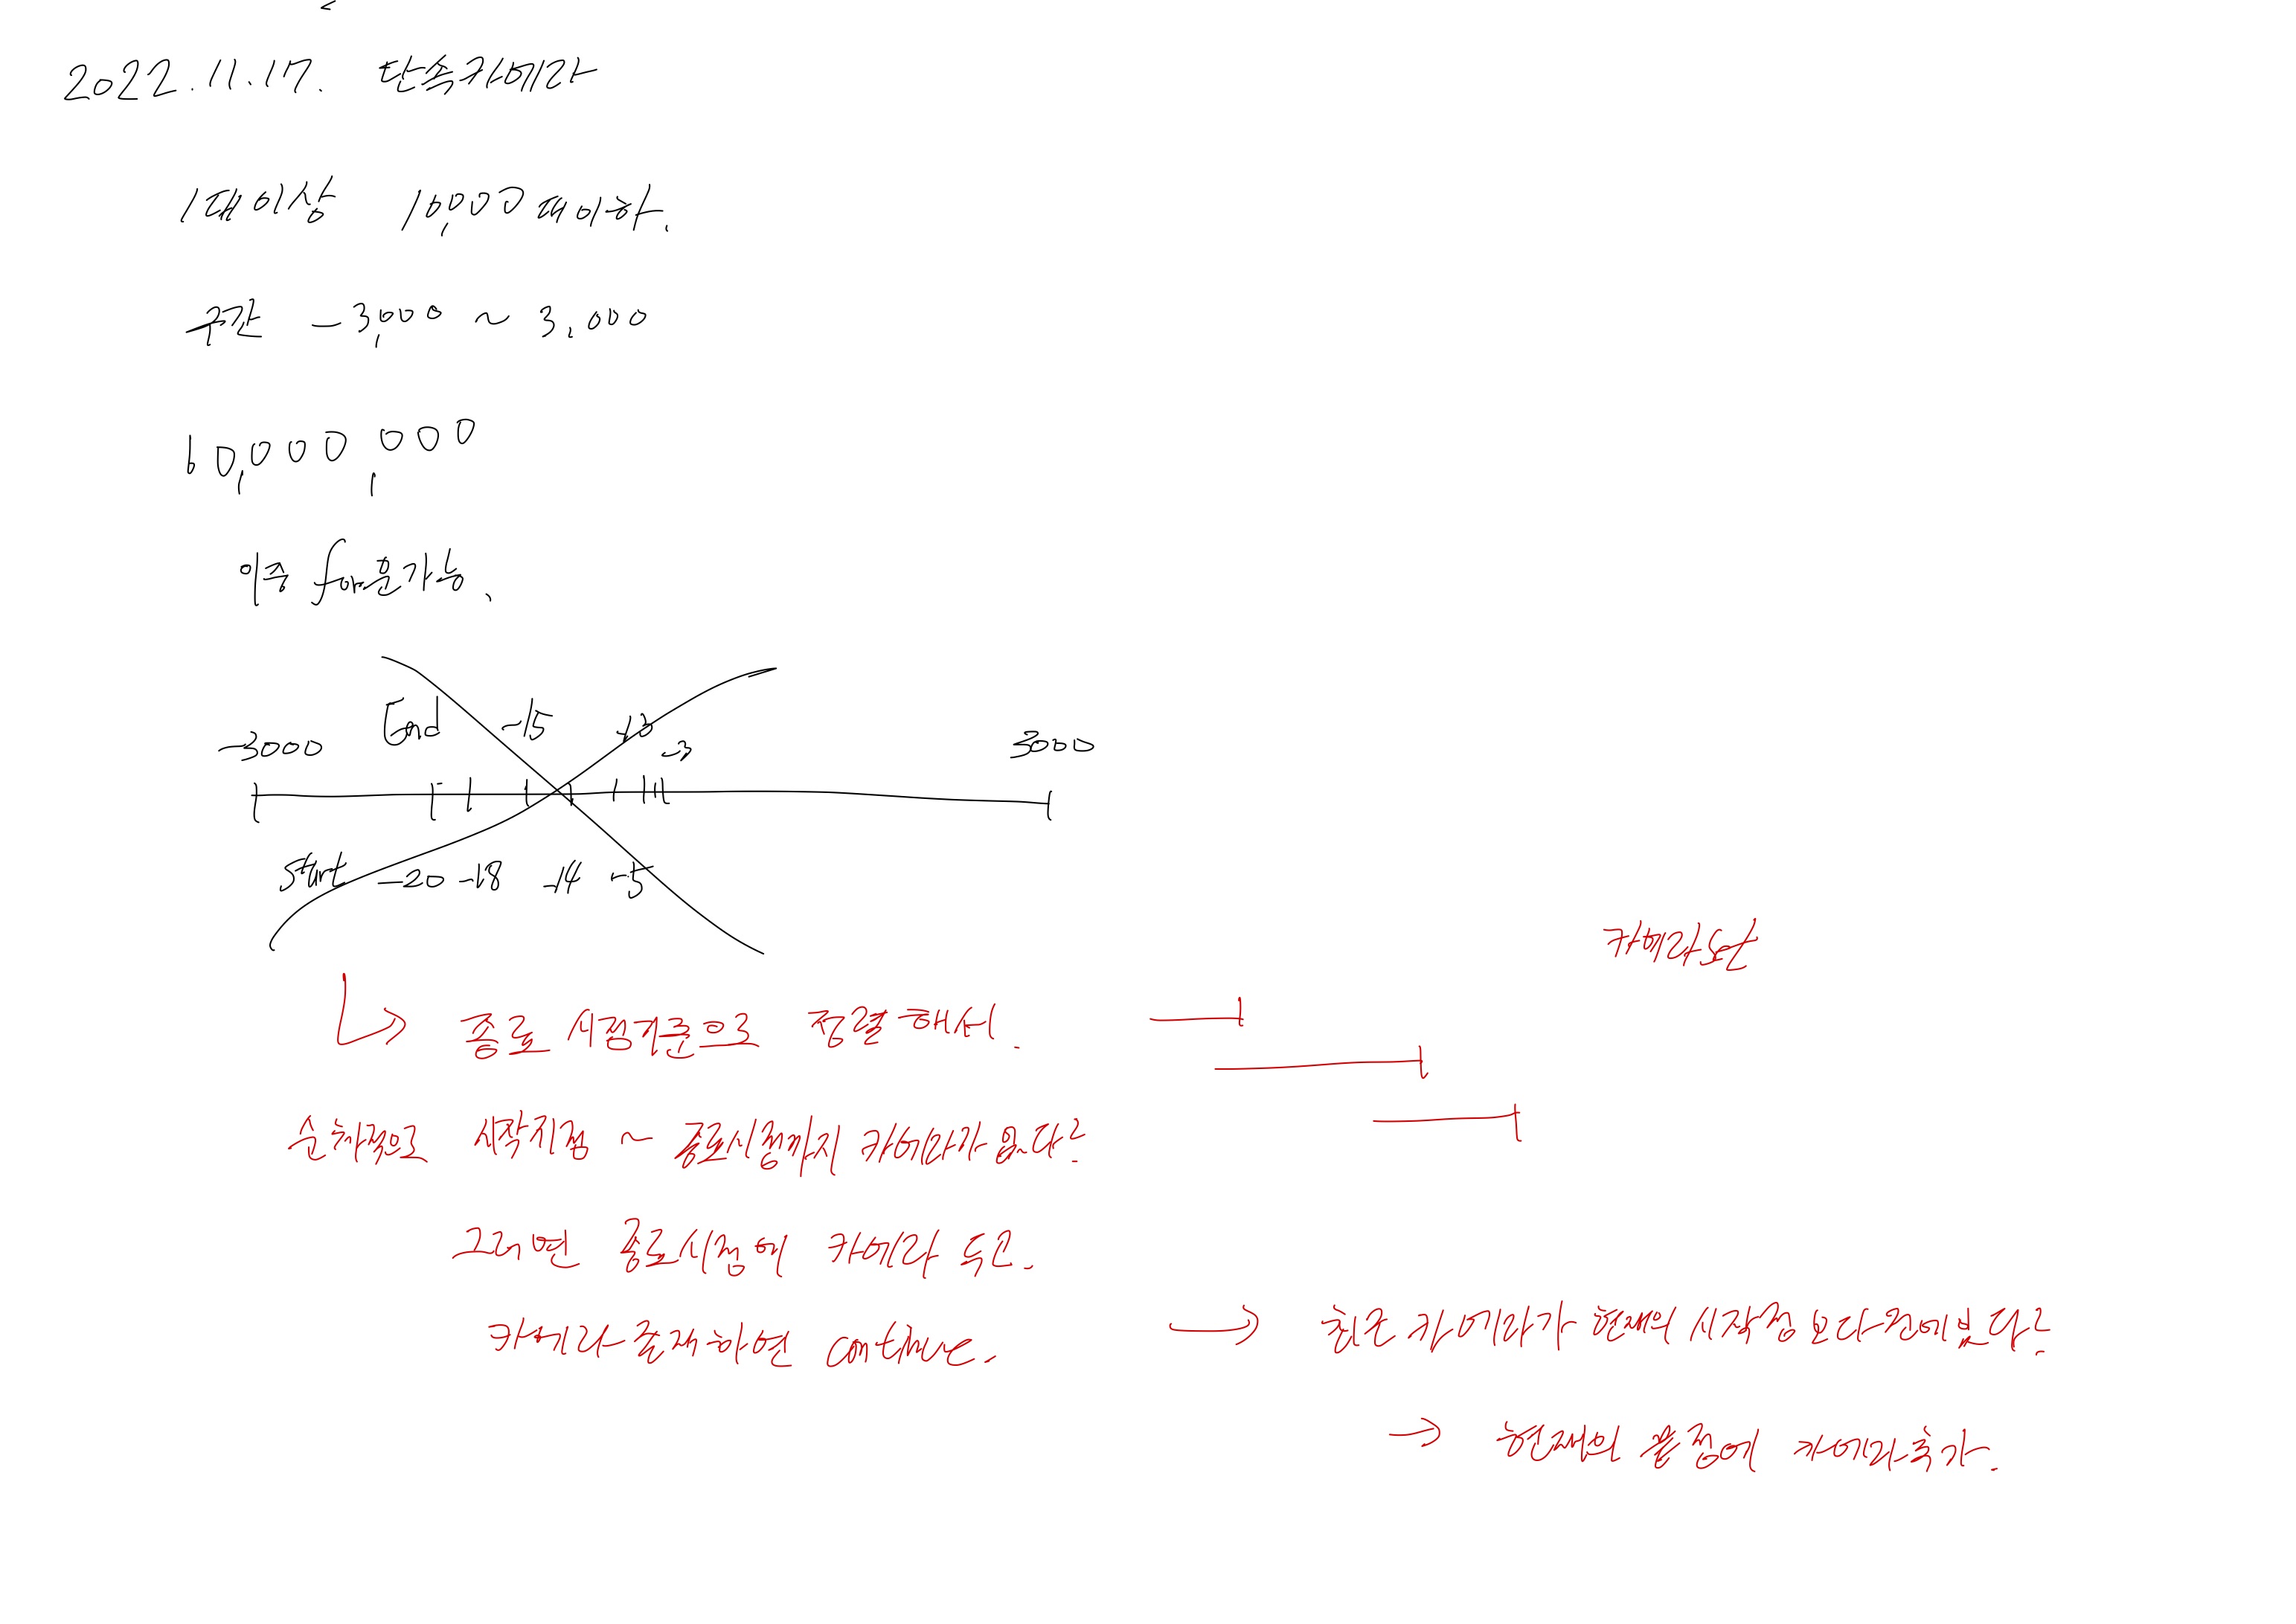 2022.11.17. 단속카메라
1대이상 10,000대이하.
구간 -3,000 ~ 3,000
60,000,000
이중 for문가능.
End -15 -13 -3
-3000 3000
start -20 -18 -14 -5
카메라도 단
종료 시점기준으로 정렬해서.
순차적으로 시작지점 ~ 종료시점까지 카메라가 없다?
그러면 종료시점에 카메라 두고.
카메라존재하면 continue.
→ 최근 카메라가 현재의 시작점 보다 전에 있다?
→ 현재의 끝점에 카메라추가.